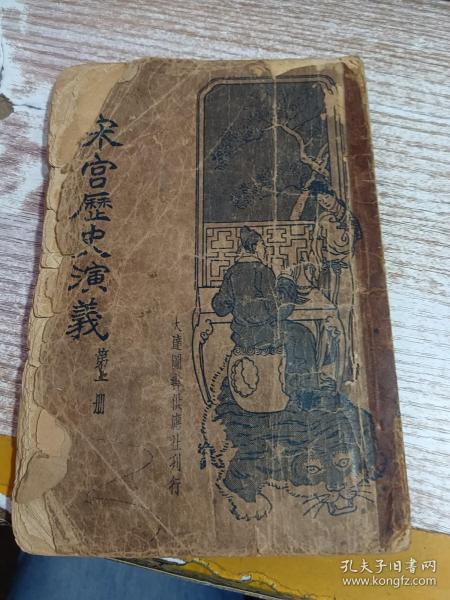 宋宫歷史演義
第五册
大達圖書供應社刊行
孔夫子旧书网
www.kongfz.com